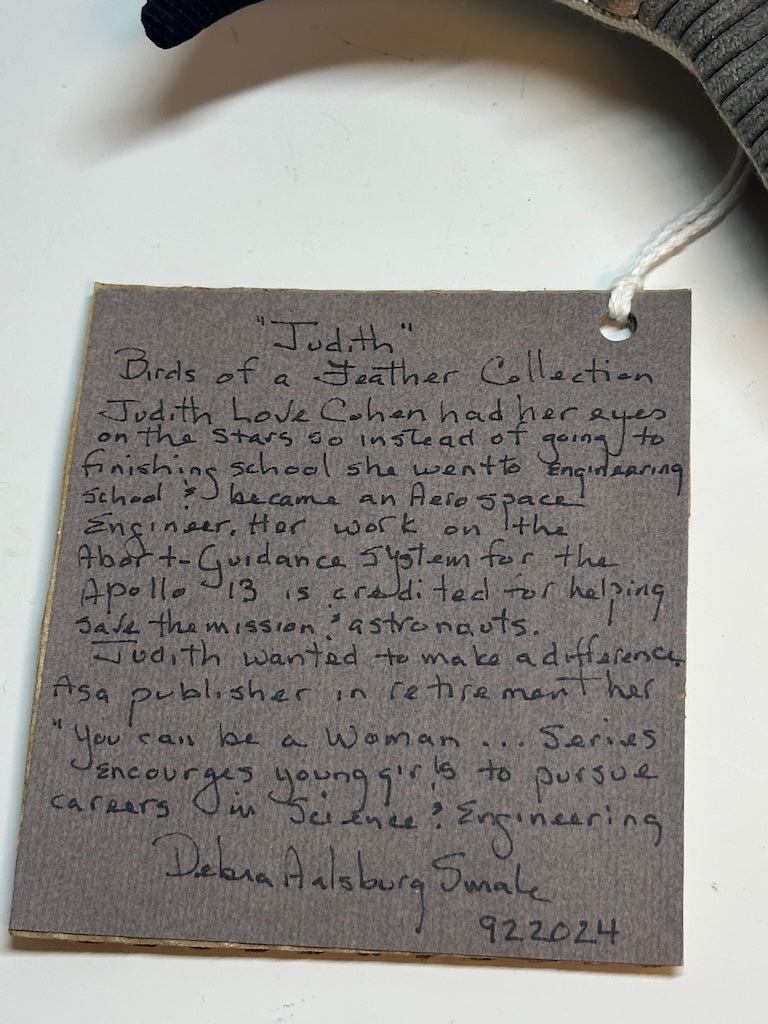 "Judith"
Birds of a Feather Collection
Judith Love Cohen had her eyes
on the stars so instead of going to
finishing school she went to Engineering
School & became an Aerospace
Engineer. Her work on the
Abort-Guidance System for the
Apollo 13 is credited for helping
save the mission & astronauts.
Judith wanted to make a difference.
As a publisher in retirement her
"You can be a Woman ... Series
encourges young girls to pursue
careers in Science & Engineering
Debra Aalsburg Smale
922024